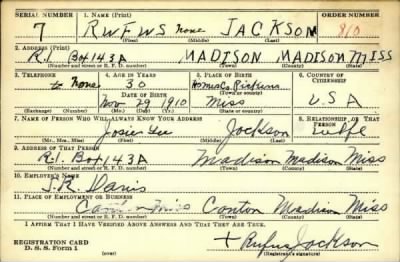 SERIAL NUMBER 1. NAME (Print) ORDER NUMBER
7 RWFWS none JACKSON 810
(First) (Middle) (Last)
2. ADDRESS (Print)
R1 Box 143A MADISON MADISON MISS
(Number and street or R. F. D. number) (Town) (County) (State)
3. TELEPHONE 4. AGE IN YEARS 5. PLACE OF BIRTH 6. COUNTRY OF CITIZENSHIP
none 30 Holmes Co. Pickens
DATE OF BIRTH (Town or county)
Nov 29 1910 Miss USA
(Exchange) (Number) (Mo.) (Day) (Yr.) (State or country)
7. NAME OF PERSON WHO WILL ALWAYS KNOW YOUR ADDRESS 8. RELATIONSHIP OF THAT PERSON
Josier Lee Jackson Wife
(Mr., Mrs., Miss) (First) (Middle) (Last)
9. ADDRESS OF THAT PERSON
R.1. Box 143A Madison Madison Miss
(Number and street or R. F. D. number) (Town) (County) (State)
10. EMPLOYER'S NAME
J.R. Davis
11. PLACE OF EMPLOYMENT OR BUSINESS
Canton Miss Canton Madison Miss
(Number and street or R. F. D. number) (Town) (County) (State)
I AFFIRM THAT I HAVE VERIFIED ABOVE ANSWERS AND THAT THEY ARE TRUE.
REGISTRATION CARD
D. S. S. Form 1 (over) + Rufus Jackson
(Registrant's signature)